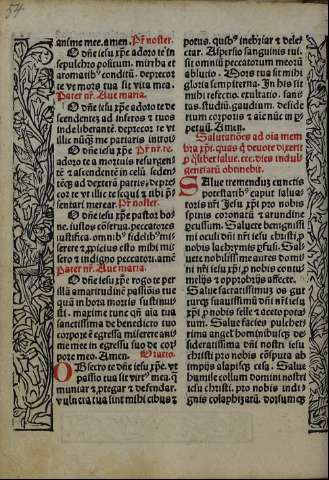 54
anime mee. amen. Pr̄ noster.
O dn̄e iesu xp̄e adoro te in
sepulchro positum. mirrha et
aromatibꝰ conditū. deprecor
te vt mors tua sit vita mea.
Pater nr̄. Aue maria.
O dn̄e iesu xp̄e adoro te de
scendentez ad inferos & tuos
inde liberantē. deprecor te vt
illic nūqꝫ me ꝑtraris introi
O dn̄e iesu xp̄e. Pr̄ noster.
adoro te a mortuis resurgen
tē & ascendentē in celū seden
tēqꝫ ad dexterā patris. depre
cor te vt illic te seq & tibi p̄
sentari merear. Pr̄ noster.
O dn̄e iesu xp̄e pastor bo
ne. iustos ꝯserua. peccatores
iustifica. omnibꝰ fidelibꝰ mi
serere & ꝓpicius esto mihi mi
sero & indigno peccatori. amē
Pater nr̄. Aue maria.
O dn̄e iesu xp̄e rogo te per
illā amaritudinē passiōis tue
quā in hora mortis sustinui
sti. maxime tunc qn̄ aīa tua
sanctissima de benedicto tuo
corpore ē egressa miserere ani
me mee in egressu suo de cor
pore meo. Amen. Oratio.
OBsecro te dn̄e iesu xp̄e. vt
passio tua sit virtꝰ mea. q̄
muniar & ꝓtegar & defendar.
vulnera tua sint mihi cibus &
potus. quibꝰ inebrier & dele
ctar. Aspersio sanguinis tui.
sit omniū peccatorum meorū
ablutio. Mors tua sit mihi
gloria sempiterna. In his sit
mihi refectio. exultatio. sani
tas. studiū. gaudium. deside
rium corporis & aīe nūc in ꝑ
petuū. Amen.
Salutatiōes ad oīa mem
bra xp̄i.
SAlue tremendum cunctis
potestatibꝰ caput saluat
toris nr̄i Jesu xp̄i pro nobis
spinis coronatū & arundine
ꝑcussum. Saluete benignissi
mi oculi dn̄i nr̄i iesu christi ꝓ
nobis lachrymis ꝑfusi. Sal
uete nobilissime aures domi
ni nr̄i iesu xp̄i. ꝓ nobis contu
melijs & opprobrijs affecte.
Salue sacratissimū os gut
turqꝫ suauissimū dn̄i nr̄i iesu
xp̄i. ꝓ nobis felle & aceto pota
tum. Salue facies pulcher
rima angelꝭ hominibusqꝫ de
sideratissima dn̄i nostri iesu
christi pro nobis cōsputa ab
impijs alapisqꝫ cesa. Salue
humile collum domini nostri
iesu christi. pro nobis indi
gnis colaphizatū. dorsumqꝫ